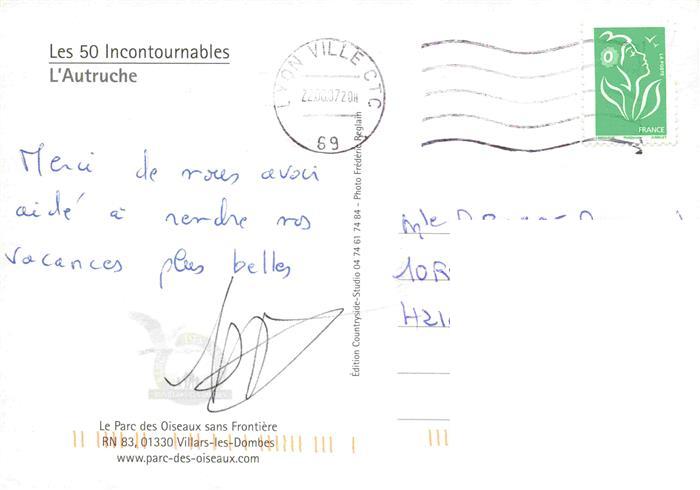 Les 50 Incontournables
L'Autruche
LYON VILLE CTC
69
LA POSTE
FRANCE
Merci de nous avoir
aidé à rendre nos
vacances plus belles
Mle
10
Édition Countryside-Studio 04 74 61 74 84 - Photo Frédéric Reglain
Le Parc des Oiseaux sans Frontière
RN 83, 01330 Villars-les-Dombes
www.parc-des-oiseaux.com